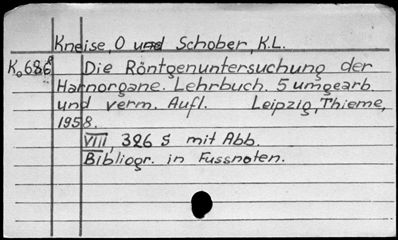 Kneise, O und Schober, K.L.
K₀686⁸ Die Röntgenuntersuchung der
Harnorgane. Lehrbuch. 5 umgearb.
und verm. Aufl. Leipzig, Thieme,
1958.
VIII, 326 S mit Abb.
Bibliogr. in Fussnoten.